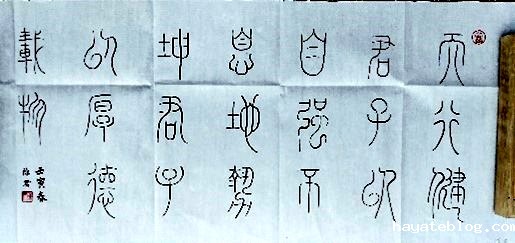 天行健
君子以
自强不
息地勢
坤君子
以厚德
載物
壬寅春
hayateblog.com